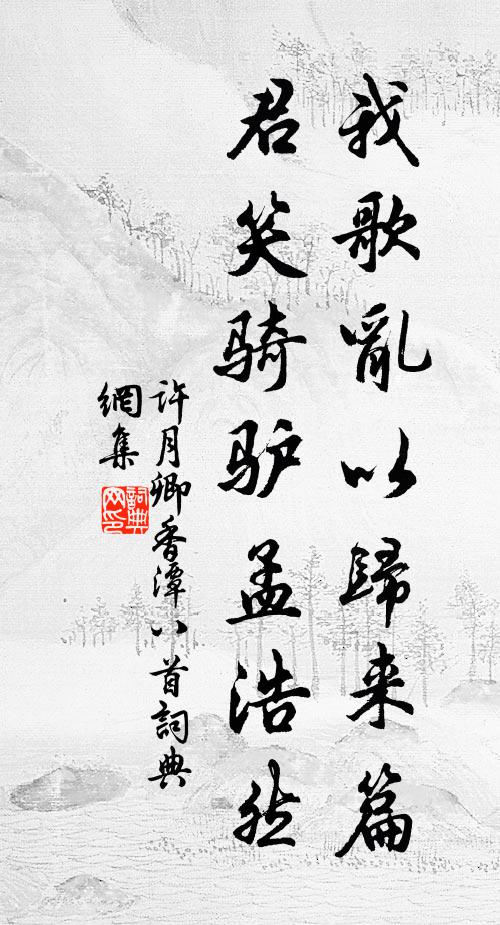 我歌亂以歸来篇
君笑騎驴孟浩然
許月卿香潭八首詞典
網集
詞典
网印